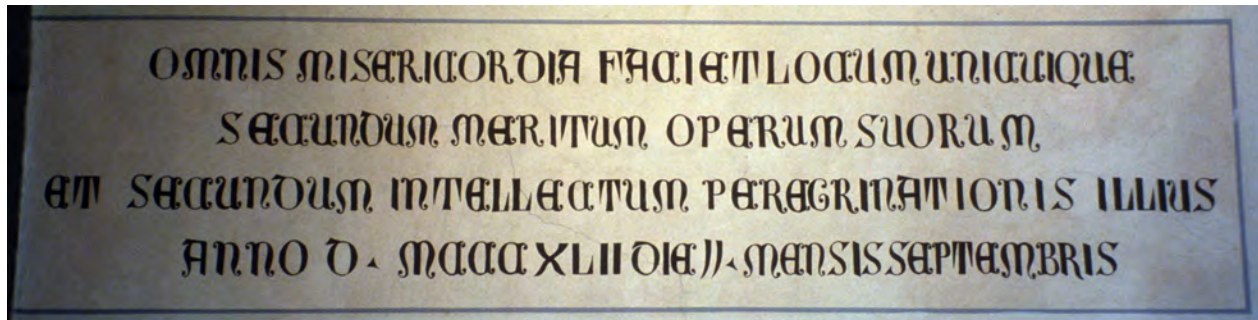 OMNIS MISERICORDIA FACIET LOCUM UNICUIQUE
SECUNDUM MERITUM OPERUM SUORUM
ET SECUNDUM INTELLECTUM PEREGRINATIONIS ILLIUS
ANNO D. MCCCXLII DIE II. MENSIS SEPTEMBRIS